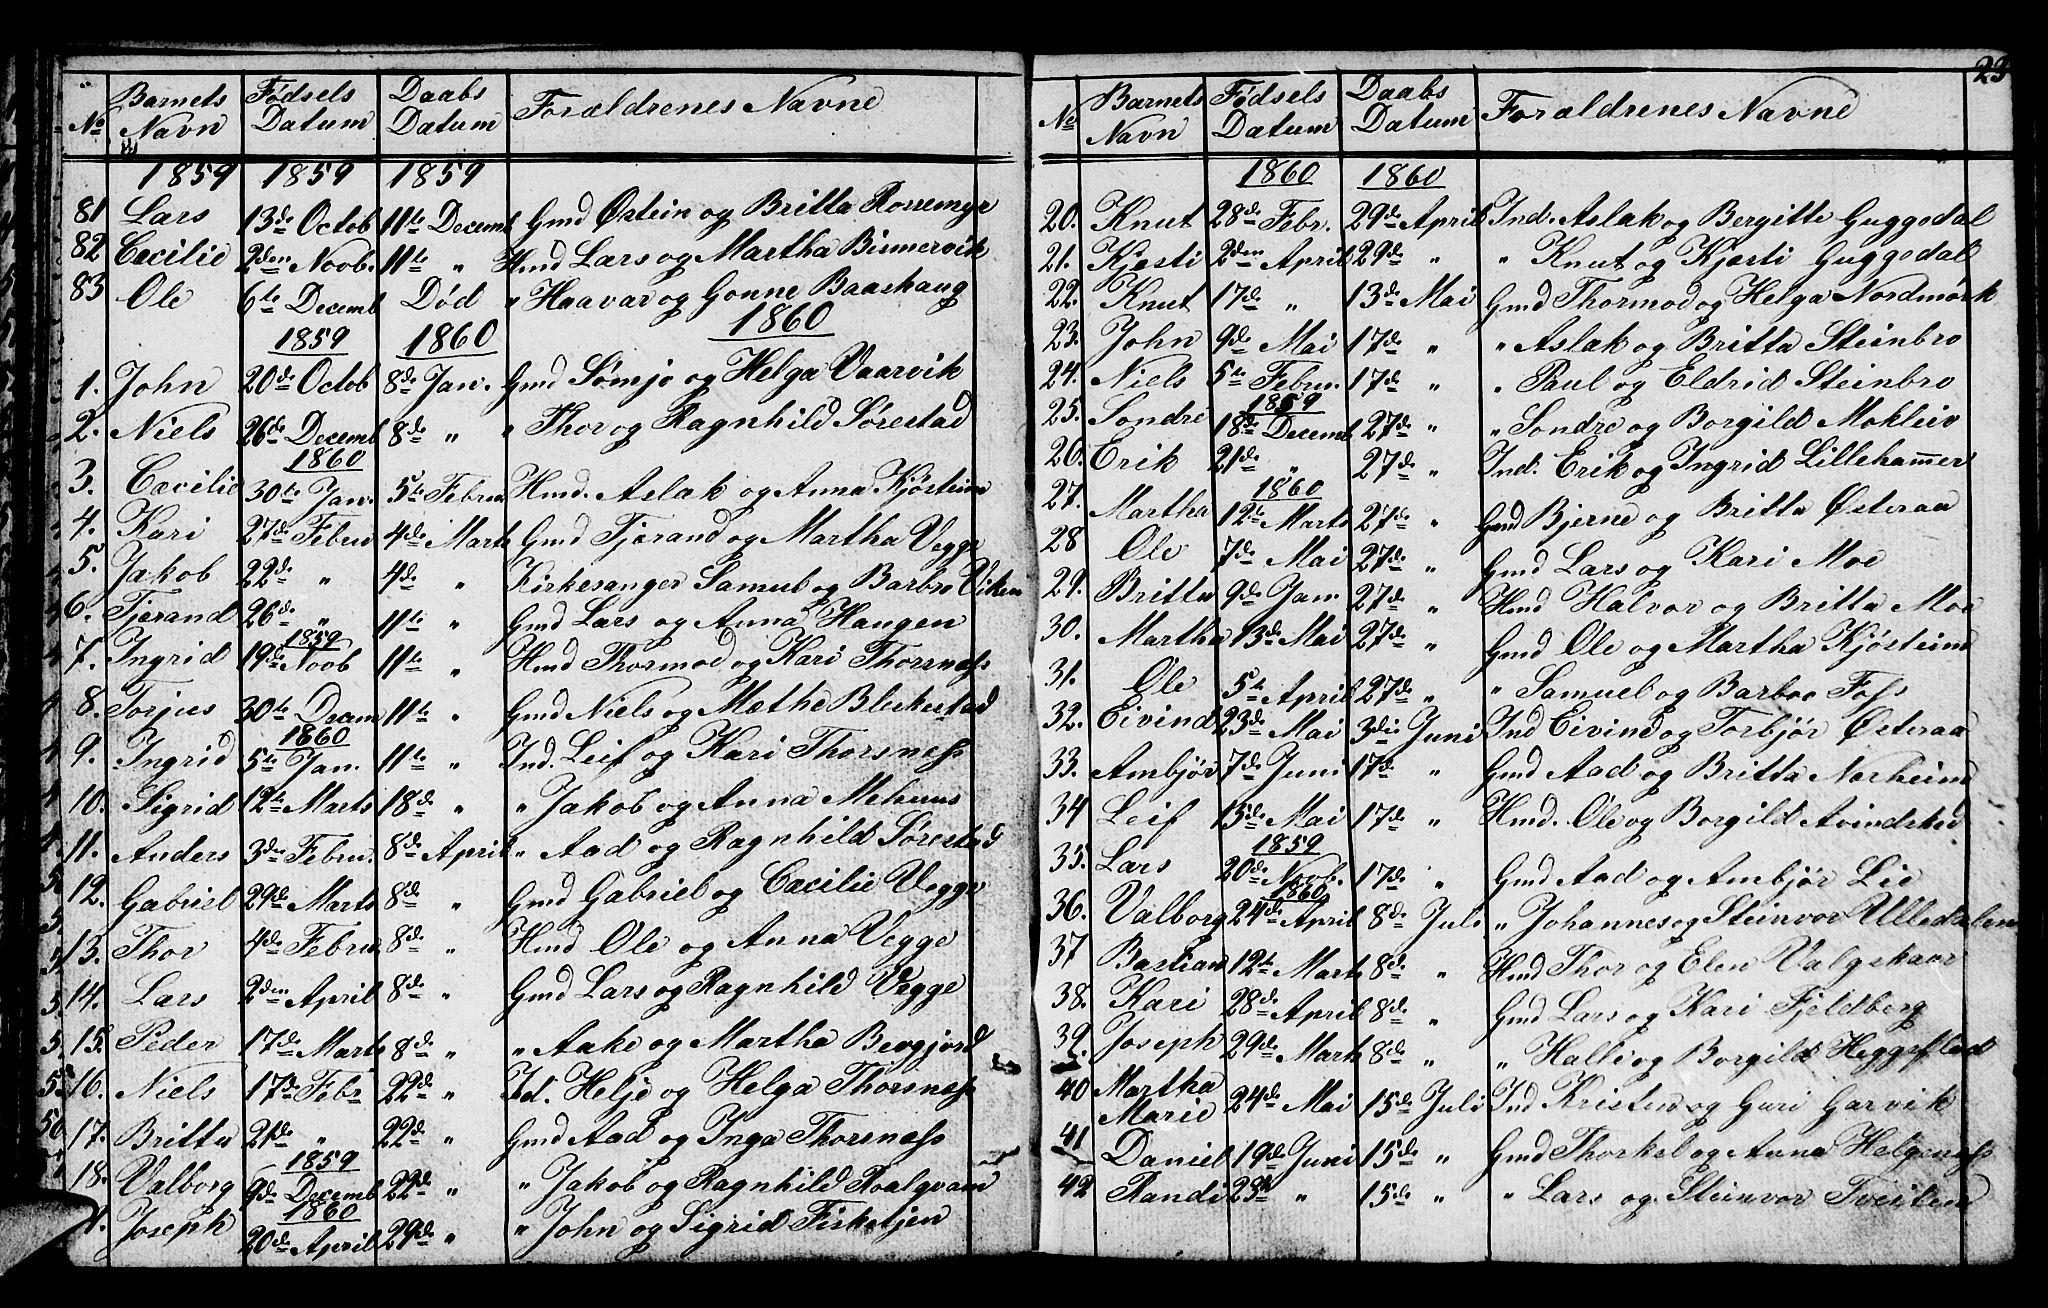 No | Barnets Navn | Fødsels Datum | Daabs Datum | Forældrenes Navne
1859 | 1859 | 1859
81 | Lars | 13de Octob | 11te Decemb | Gmd Østein og Britta Rossemyr
82 | Cecilie | 2den Novb. | 11te " | Hmd Lars og Martha Birmervik
83 | Ole | 6te Decemb | Død | " Haavar og Gonne Baashaug
1859 | 1860 | 1860
1. | John | 20de Octob | 8de Jan. | Gmd Sømje og Helga Vaarvik
2. | Niels | 26de Decemb | 8de " | " Thor og Ragnhild Sørestad
1860
3. | Cacilie | 30te Jan. | 5te Februr | Hmd. Aslak og Anna Kjøsteim
4. | Kari | 27de Februr | 4de Marts | Gmd Tjerand og Martha Vegge
5. | Jakob | 22de " | 4de " | Kirkesanger Samuel og Barbro Viken
6. | Tjerand | 26de " | 11te " | Gmd Lars og Anna Haugen
1859
7. | Ingrid | 19de Novb | 11te " | Hmd Thormod og Kari Thorsness
8. | Torjus | 30te Decem | 11te " | Gmd Niels og Methe Bleskestad
1860
9. | Ingrid | 5te Jan. | 11te " | Ind. Leif og Kari Thorsness
10. | Sigrid | 12te Marts | 18de " | " Jakob og Anna Mehuus
11. | Anders | 3die Februr. | 8de April | " Aad og Ragnhild Sørestad
12. | Gabriel | 29de Marts | 8de " | Gmd Gabriel og Cacilie Vegge
13. | Thor | 4de Februr | 8de " | Hmd Ole og Anna Vegge
14. | Lars | 2den April | 8de " | Gmd Lars og Ragnhild Vegge
15. | Peder | 17de Marts | 8de " | " Aake og Martha Bergjord
16. | Niels | 17de Febr | 22de " | Id. Helje og Helga Thorsness
17. | Britta | 21de " | 22de " | Gmd Aad og Inga Thorsness
1859
18. | Valborg | 9de Decemb | 22de " | " Jakob og Ragnhild Roalqvam
1860
Joseph | 20de April | 29de " | " John og Sigrid Fisketjen
23
No | Barnets Navn | Fødsels Datum | Daabs Datum | Forældrenes Navne
1860 | 1860
20. | Knut | 28de Febr. | 29de April | Ind. Aslak og Bergitte Guggedal
21. | Kjæsti | 2den April | 29de " | " Knut og Kjæsti Guggedal
22. | Knut | 17de " | 13de Mai | Gmd Thormod og Helga Nordmørk
23. | John | 9de Mai | 17de " | " Aslak og Britta Steinbro
24. | Niels | 5te Februr. | 17de " | " Paul og Eldrid Steinbro
1859
25. | Sondre | 18de Decemb | 27de " | " Sondre og Borgild Mokleiv
26. | Erik | 21de " | 27de " | Ind. Erik og Ingrid Lillehammer
1860
27. | Martha | 12te Marts | 27de " | Gmd Bjerne og Britta Østeraa
28 | Ole | 7de Mai | 27de " | Gmd Lars og Kari Moe
29. | Britta | 9de Jan. | 27de " | Hmd Halvor og Britta Moe
30. | Martha | 13de Mai | 27de " | Gmd Ole og Martha Kjøsteim
31. | Ole | 5te April | 27de " | " Samuel og Barbro Foss
32. | Eivind | 23de Mai | 3die Juni | Ind Eivind og Torbjør Østeraa
33. | Ambjør | 7de Juni | 17de " | Gmd Aad og Britta Norheim
34 | Leif | 15de Mai | 17de " | Hmd. Ole og Borgild Avindsked
1859
35. | Lars | 20de Novb. | 17de " | Gmd Aad og Ambjør Lie
1860
36. | Valborg | 24de April | 8de Juli | " Johannes og Steinvor Ulledalen
37 | Bastian | 12te Marts | 8de " | Hmd Thor og Elen Valgskaar
38. | Kari | 28de April | 8de " | Gmd Lars og Kari Fjeldberg
39. | Joseph | 29de Marts | 8de " | " Halle og Borgild Heggeflad
40 | Martha Marie | 24de Mai | 15de Juli | Ind Kristen og Guri Garvik
41 | Daniel | 19de Juni | 15de " | Gmd Thorkel og Anna Helgeness
42 | Randi | 23de " | 15de " | " Lars og Steinvor Tveiten